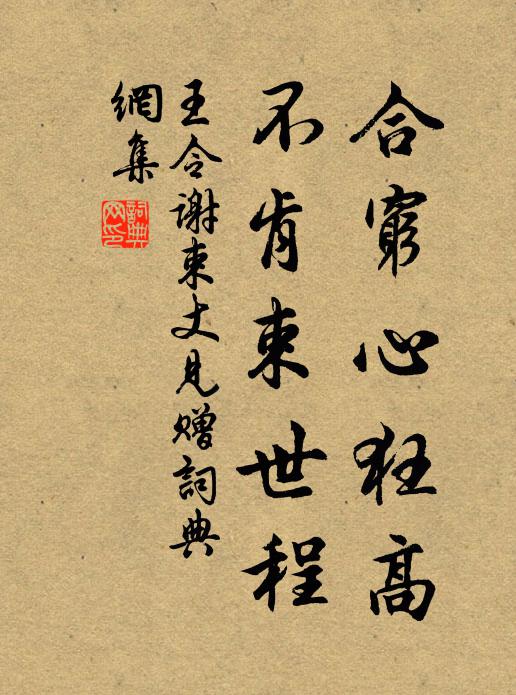 合窮心狂高
不肯束世程
王令謝束丈見贈詞典
網集
詞典
网印